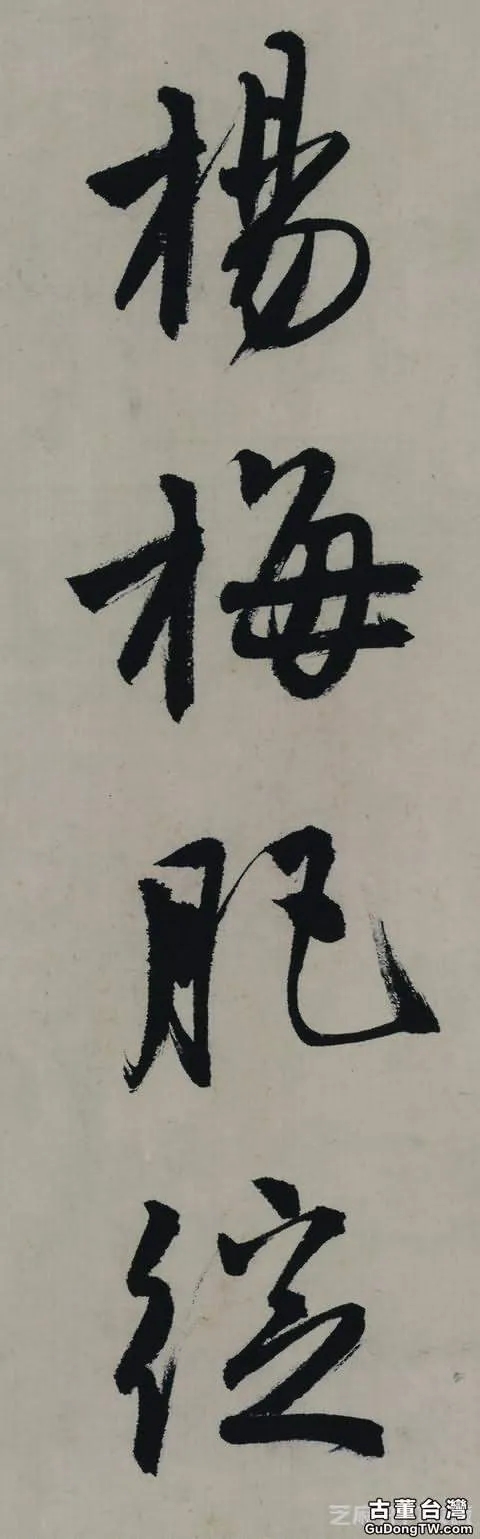 楊梅肥綻
古董台灣
GuDongTW.com